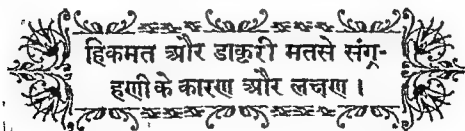 हिकमत और डाक्टरी मतसे संग्र-
हणीके कारण और लक्षण ।